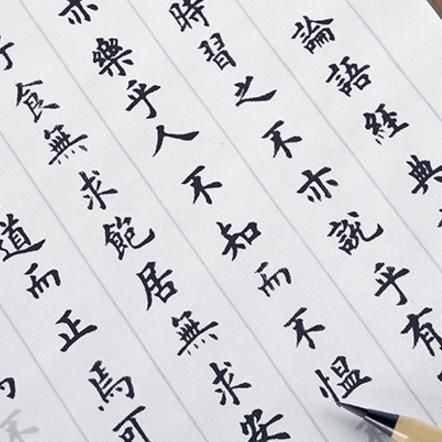 論語經典
時習之不亦說乎有
亦樂乎人不知而不慍
食無求飽居無求安
道而正焉可